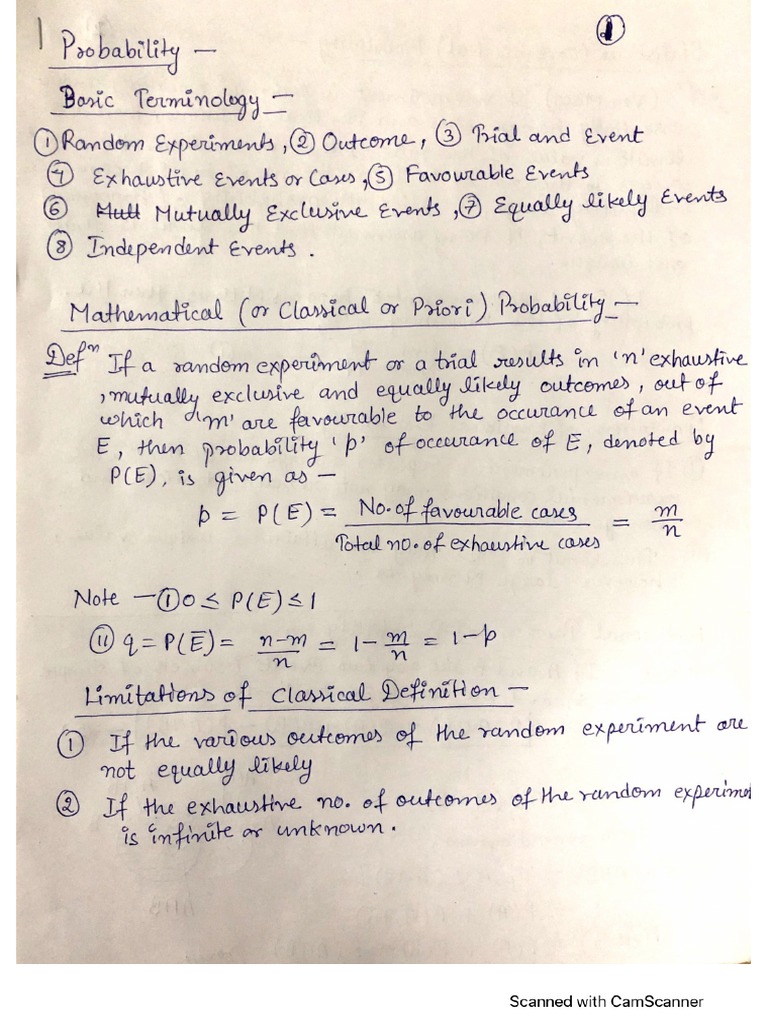 ①
Probability –
Basic Terminology –
① Random Experiments, ② Outcome, ③ Trial and Event
④ Exhaustive Events or Cases, ⑤ Favourable Events
⑥ Mull Mutually Exclusive Events, ⑦ Equally likely Events
⑧ Independent Events.
Mathematical (or Classical or Priori) Probability –
Defⁿ If a random experiment or a trial results in 'n' exhaustive
, mutually exclusive and equally likely outcomes, out of
which 'm' are favourable to the occurance of an event
E, then probability 'p' of occurance of E, denoted by
P(E), is given as –
p = P(E) = No. of favourable cases / Total no. of exhaustive cases = m/n
Note – ① 0 ≤ P(E) ≤ 1
(ii) q = P(E̅) = (n-m)/n = 1 - m/n = 1-p
Limitations of Classical Definition –
① If the various outcomes of the random experiment are
not equally likely
② If the exhaustive no. of outcomes of the random experimet
is infinite or unknown.
Scanned with CamScanner